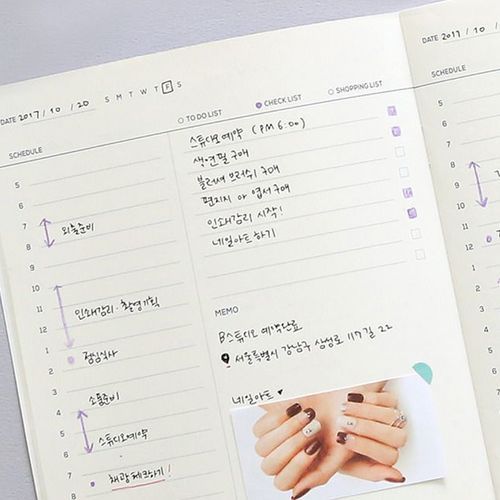 DATE 2017 / 10 / 20 S M T W T F S
DATE 2017 / 10 /
SCHEDULE
○ TO DO LIST ● CHECK LIST ○ SHOPPING LIST
SCHEDULE
스튜디오 예약 (PM 6:00)
색연필 구매
블러셔 브러쉬 구매
편지지 와 엽서 구매
인쇄감리 시작!
네일아트 하기
5
6
7
외출준비
8
9
10
11
인쇄감리 · 촬영기획
12
1
점심식사
2
3
소품준비
4
5
스튜디오예약
6
7
채광 체크하기!
8
MEMO
B스튜디오 예약완료
서울특별시 강남구 삼성로 119길 22
네일아트 ♥
5
6
7
8
9
10
11
12
1
2
3
4
5
6
7